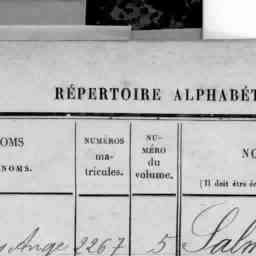 RÉPERTOIRE ALPHABÉT
OMS
NOMS.
NUMÉROS
ma-
tricules.
NU-
MÉRO
du
volume.
NO
(Il doit être é
Ange 2267 5 Salm